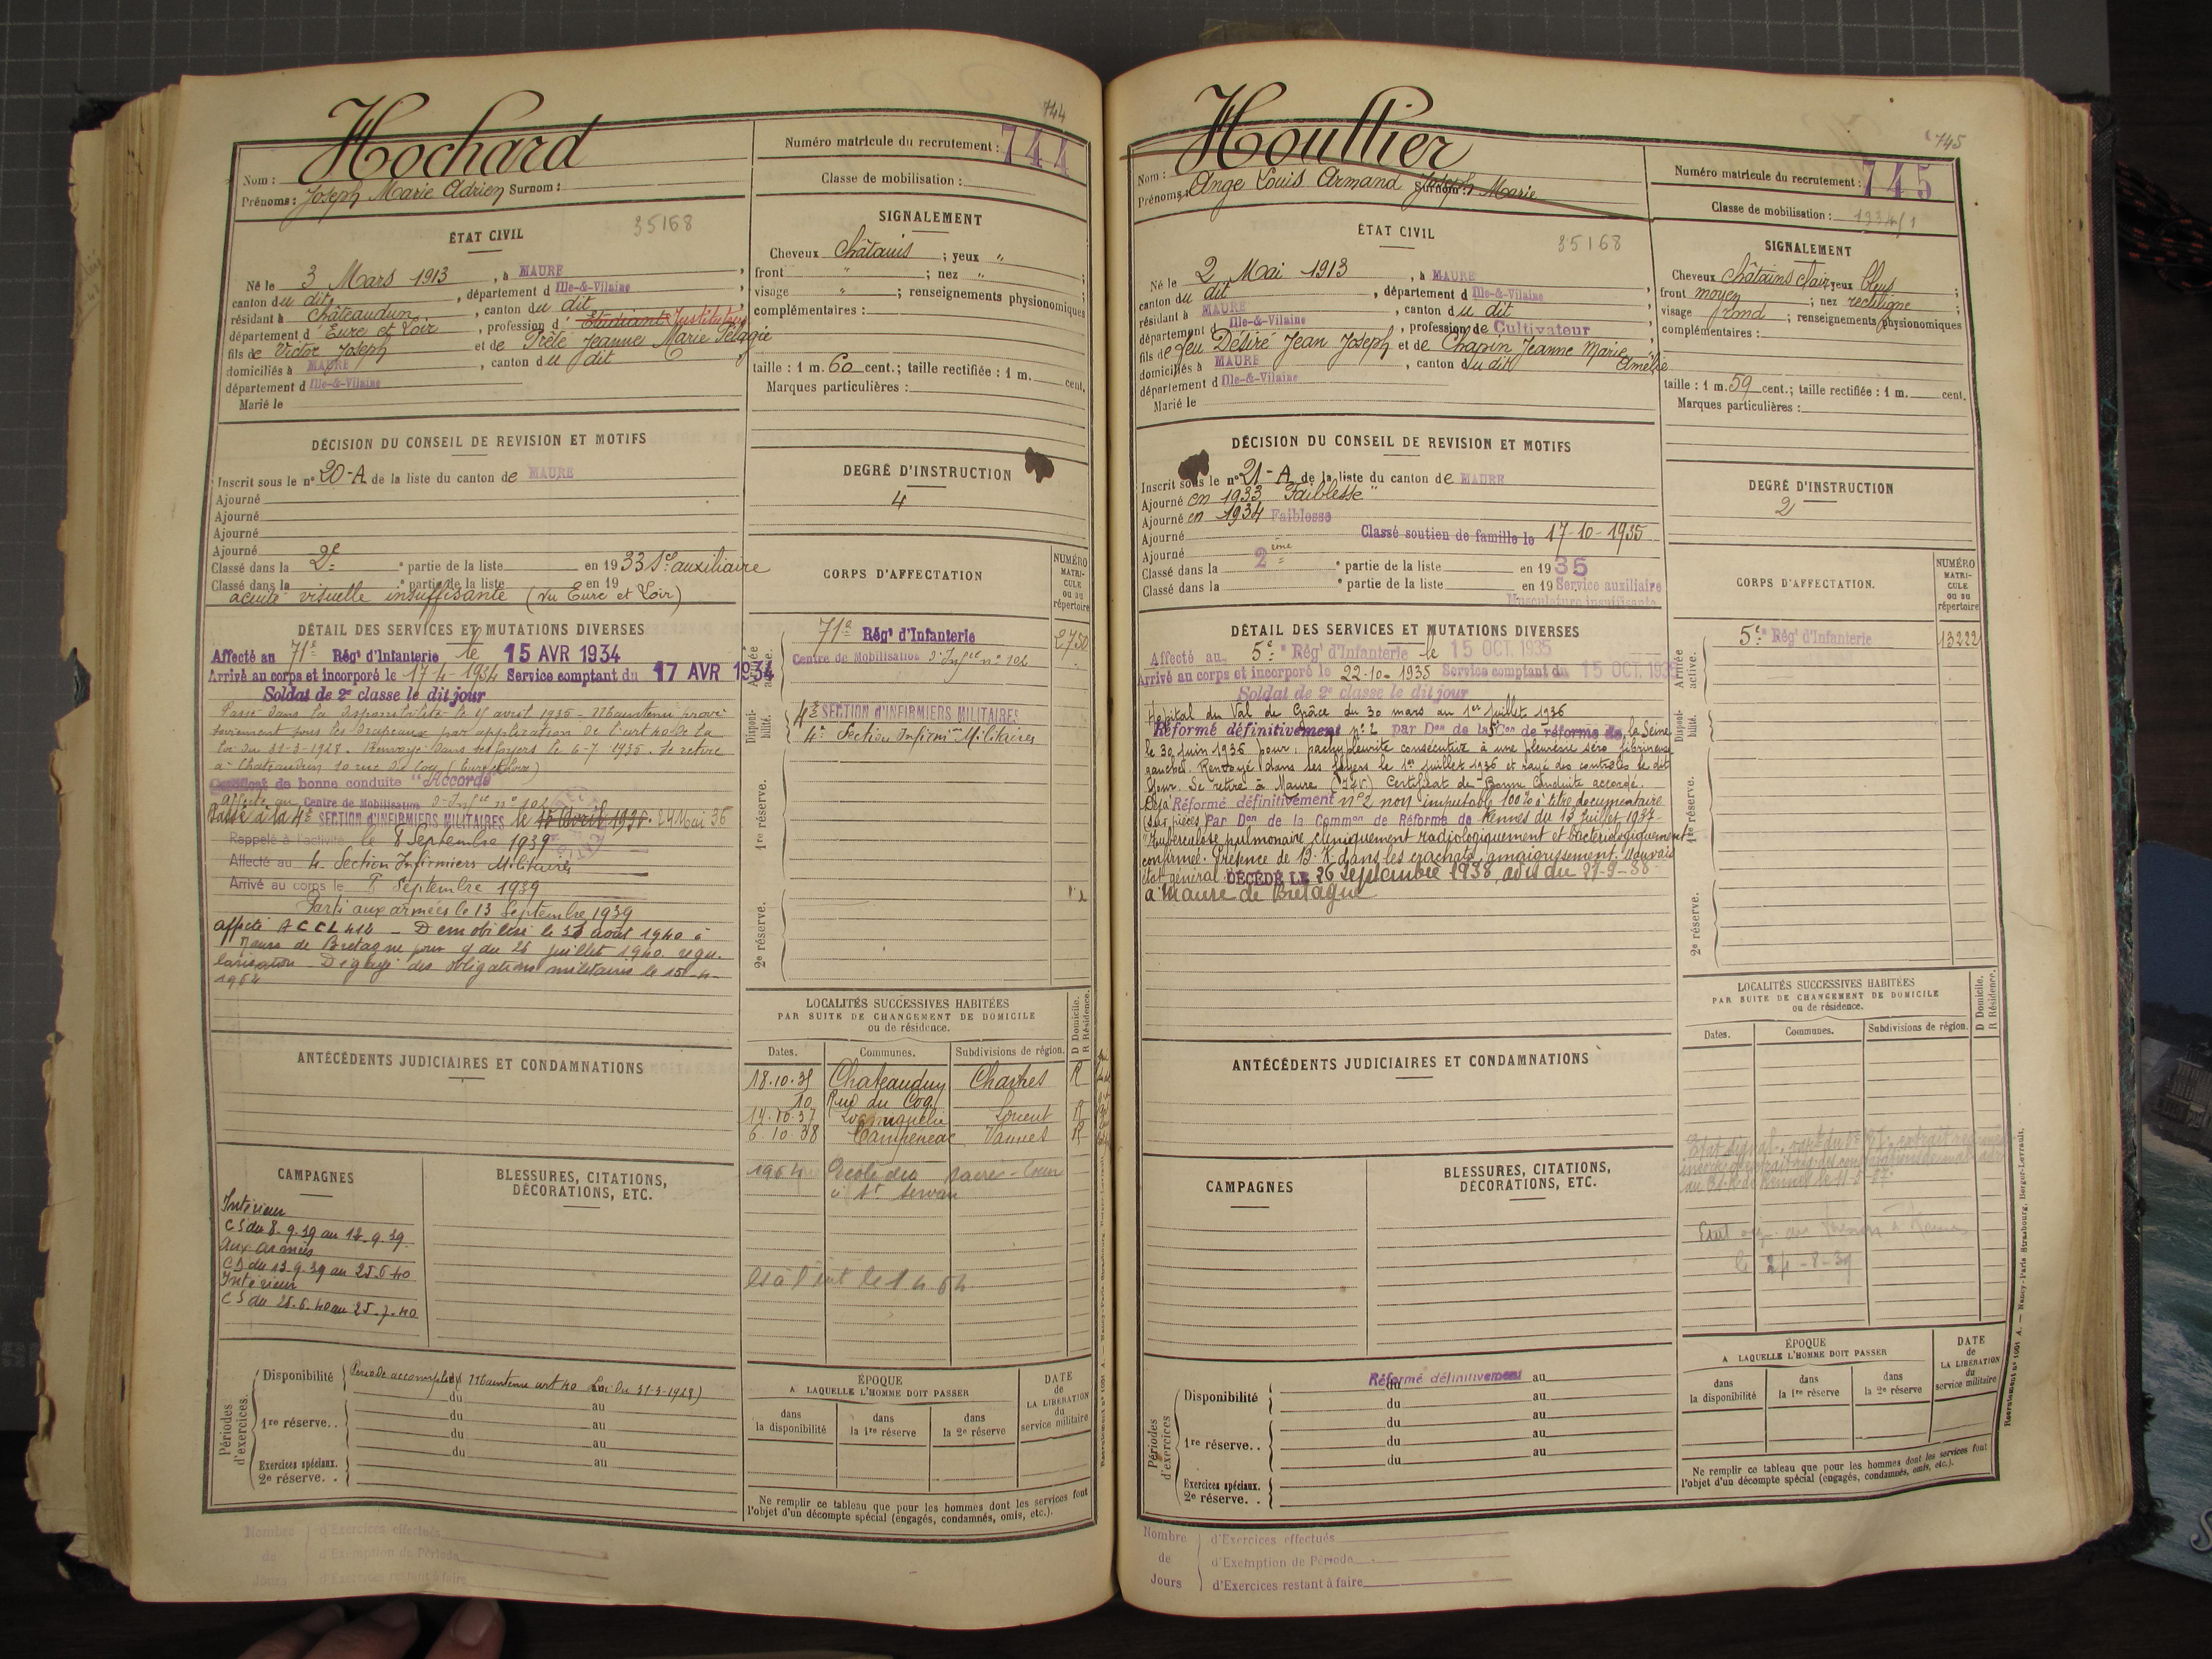 744
Hochard
Nom :
Prénoms : Joseph Marie Adrien Surnom :
Numéro matricule du recrutement : 744
Classe de mobilisation :
ÉTAT CIVIL
35168
Né le 3 Mars 1913, à MAURE,
canton du dit, département d Ille-&-Vilaine,
résidant à Châteaudun, canton du dit,
département d'Eure et Loir, profession d'Etudiant Instituteur
fils de Victor Joseph et de Prêle Jeanne Marie Pélagie
domiciliés à MAURE, canton du dit
département d Ille-&-Vilaine
Marié le
SIGNALEMENT
Cheveux châtains ; yeux "
front " ; nez " ;
visage " ; renseignements physionomiques
complémentaires :
taille : 1 m. 60 cent.; taille rectifiée : 1 m. cent.
Marques particulières :
DÉCISION DU CONSEIL DE REVISION ET MOTIFS
Inscrit sous le n° 20-A de la liste du canton de MAURE
Ajourné
Ajourné
Ajourné
Ajourné
Classé dans la 2e partie de la liste en 1933 Sce auxiliaire
Classé dans la partie de la liste en 19
acuité visuelle insuffisante (vu Eure et Loir)
DEGRÉ D'INSTRUCTION
4
CORPS D'AFFECTATION
NUMÉRO MATRI-CULE ou au répertoire
DÉTAIL DES SERVICES ET MUTATIONS DIVERSES
Affecté au 71e Régt d'Infanterie le 15 AVR 1934
Arrivé au corps et incorporé le 17-4-1934 Service comptant du 17 AVR 1934
Soldat de 2e classe le dit jour
Passé dans la disponibilité le 15 avril 1935 - Maintenu provi
soirement sous les drapeaux par application de l'art 40 de la
loi du 31-3-1928. Renvoyé dans ses foyers le 6-7-1935. Se retire
à Chateaudun 10 rue du Coq (Eure & Loir)
Certificat de bonne conduite "Accordé"
Affecté au Centre de Mobilisation d'Infie n° 102
Passé à la 4e SECTION d'INFIRMIERS MILITAIRES le 15 Avril 1936. 24 Mai 36
Rappelé à l'activité le 8 Septembre 1939
Affecté au 4e Section Infirmiers Militaires
Arrivé au corps le 8 Septembre 1939
Parti aux armées le 13 Septembre 1939
affecté A C C L 414 - Démobilisé le 31 août 1940 à
Maure de Bretagne pour y du 25 juillet 1940 régu.
larisation - Dégagé des obligations militaires le 15-4-
1964
Armée active.
71e Régt d'Infanterie 2750
Centre de Mobilisation d'Infie n° 102
Disponibilité.
4e SECTION d'INFIRMIERS MILITAIRES
4e Section Infirm Militaires
1re réserve.
2e réserve.
LOCALITÉS SUCCESSIVES HABITÉES
PAR SUITE DE CHANGEMENT DE DOMICILE
ou de résidence.
Dates. Communes. Subdivisions de région. D Domicile. R Résidence.
18.10.35 Chateaudun Chartres R
10 Rue du Coq
14.10.37 Locmiquélic Lorient R
6.10.38 Campénéac Vannes R
1964 Ecole du Sacré-Coeur
à St Servan
ANTÉCÉDENTS JUDICIAIRES ET CONDAMNATIONS
CAMPAGNES
Intérieur
CS du 8.9.39 au 12.9.39
Aux armées
CD du 13.9.39 au 25.6.40
Intérieur
CS du 26.6.40 au 25.7.40
BLESSURES, CITATIONS,
DÉCORATIONS, ETC.
Périodes d'exercices.
Disponibilité Période accomplie (Maintenu art 40 Loi du 31-3-1928)
du au
1re réserve. . du au
du au
Exercices spéciaux. du au
2e réserve. .
ÉPOQUE
A LAQUELLE L'HOMME DOIT PASSER
dans la disponibilité
dans la 1re réserve
dans la 2e réserve
DATE de LA LIBÉRATION du service militaire
Ne remplir ce tableau que pour les hommes dont les services font
l'objet d'un décompte spécial (engagés, condamnés, omis, etc.).
Nombre de Jours
d'Exercices effectués
d'Exemption de Période
d'Exercices restant à faire
745
Houllier
Nom :
Prénoms : Ange Louis Armand Joseph Marie
Surnom :
Numéro matricule du recrutement : 745
Classe de mobilisation : 1934/1
ÉTAT CIVIL
35168
Né le 2 Mai 1913, à MAURE
canton du dit, département d Ille-&-Vilaine
résidant à MAURE, canton du dit
département d Ille-&-Vilaine, profession de Cultivateur
fils de feu Désiré Jean Joseph et de Chapin Jeanne Marie Amélie
domiciliés à MAURE, canton du dit
département d Ille-&-Vilaine
Marié le
SIGNALEMENT
Cheveux châtains clair yeux bleus ;
front moyen ; nez rectiligne ;
visage rond ; renseignements physionomiques
complémentaires :
taille : 1 m. 59 cent.; taille rectifiée : 1 m. cent.
Marques particulières :
DÉCISION DU CONSEIL DE REVISION ET MOTIFS
Inscrit sous le n° 21-A de la liste du canton de MAURE
Ajourné en 1933 "Faiblesse"
Ajourné en 1934 Faiblesse
Ajourné Classé soutien de famille le 17-10-1935
Ajourné
Classé dans la 2ème partie de la liste en 1935
Classé dans la partie de la liste en 19 Service auxiliaire
Musculature insuffisante
DEGRÉ D'INSTRUCTION
2
CORPS D'AFFECTATION.
NUMÉRO MATRI-CULE ou au répertoire
DÉTAIL DES SERVICES ET MUTATIONS DIVERSES
Affecté au 5e Régt d'Infanterie le 15 OCT. 1935
Arrivé au corps et incorporé le 22-10-1935 Service comptant du 15 OCT. 1935
Soldat de 2e classe le dit jour
Hôpital du Val de Grâce du 30 mars au 1er juillet 1936
Réformé définitivement n° 2 par Don de la Con de réforme de la Seine
le 30 juin 1936 pour : pachypleurite consécutive à une pleurésie séro fibrineuse
gauche. Renvoyé dans ses foyers le 1er juillet 1936 et rayé des contrôles le dit
jour. Se retire à Maure (I&V) Certificat de Bonne Conduite accordé.
Déjà Réformé définitivement n° 2 non imputable 100% à titre documentaire
(sur pièces) Par Don de la Common de Réforme de Rennes du 13 juillet 1937-
"Tuberculose pulmonaire cliniquement radiologiquement et bactériologiquement
confirmée. Présence de B.K. dans les crachats, amaigrissement. Mauvais
état général. DÉCÉDÉ LE 26 Septembre 1938, avis du 27-9-38
à Maure de Bretagne
Armée active.
5e Régt d'Infanterie 13222
Disponibilité.
1re réserve.
2e réserve.
LOCALITÉS SUCCESSIVES HABITÉES
PAR SUITE DE CHANGEMENT DE DOMICILE
ou de résidence.
Dates. Communes. Subdivisions de région. D Domicile. R Résidence.
le 24-8-39
ANTÉCÉDENTS JUDICIAIRES ET CONDAMNATIONS
CAMPAGNES
BLESSURES, CITATIONS,
DÉCORATIONS, ETC.
Périodes d'exercices.
Réformé définitivement
Disponibilité du au
du au
1re réserve. . du au
du au
du au
Exercices spéciaux.
2e réserve. .
ÉPOQUE
A LAQUELLE L'HOMME DOIT PASSER
dans la disponibilité
dans la 1re réserve
dans la 2e réserve
DATE de LA LIBÉRATION du service militaire
Ne remplir ce tableau que pour les hommes dont les services font
l'objet d'un décompte spécial (engagés, condamnés, omis, etc.).
Recrutement N° 1051 A. — Nancy-Paris Strasbourg, Berger-Levrault.
Nombre de Jours
d'Exercices effectués
d'Exemption de Période
d'Exercices restant à faire